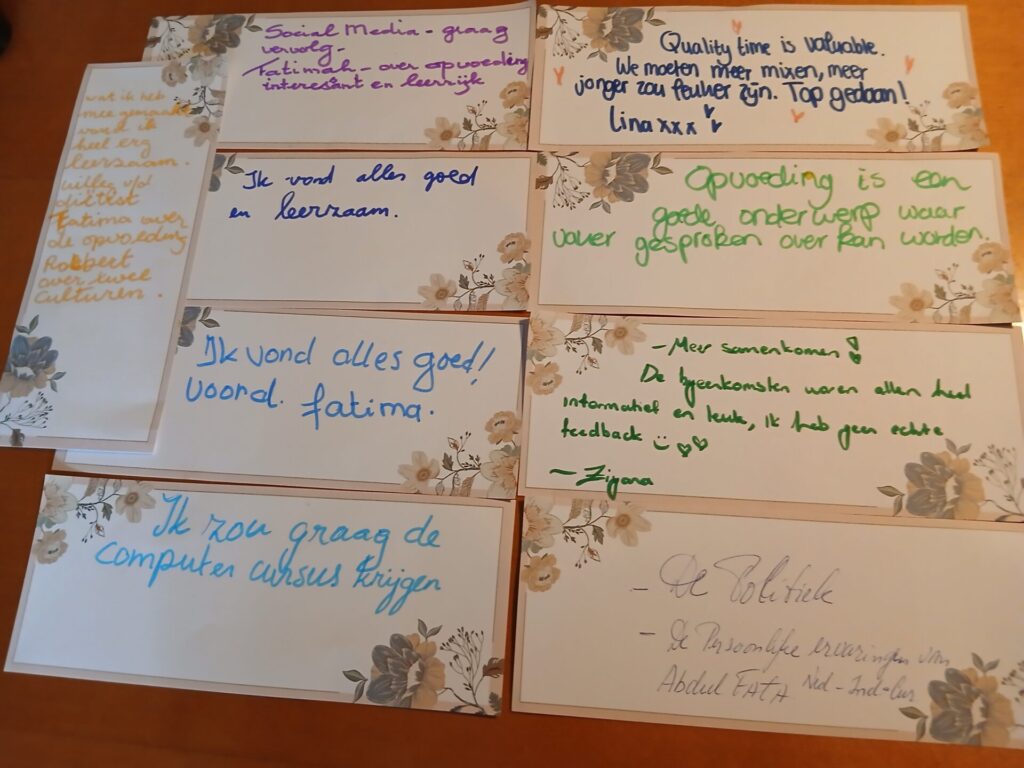 Social Media - graag
vervolg -
Fatimah - over opvoeding
interesant en leerrijk
Quality time is valuable.
We moeten meer mixen, meer
jonger zou leuker zijn. Top gedaan!
Lina xxx
wat ik heb
mee gemaakt
vond ik
heel erg
leerzaam.
Fatima over
de opvoeding
Robbert
over twee
culturen.
Ik vond alles goed
en leerzaam.
Opvoeding is een
goede onderwerp waar
vaver gesproken over kan worden.
Ik vond alles goed!
voord. fatima.
- Meer samenkomen!
De bijeenkomsten waren allen heel
informatief en leuk, ik heb geen echte
feedback
Ik zou graag de
computer cursus krijgen
- De Politiek
- De Persoonlijke ervaringen van
Abdul FATA Ned - Ind -